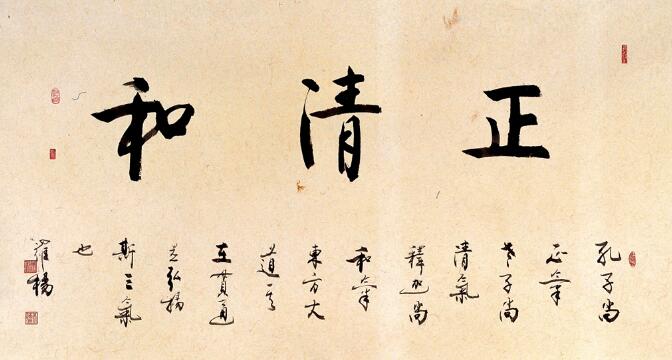 正清和
孔子尚
正氣
老子尚
清氣
釋迦尚
和氣
東方大
道其
在貫通
並弘揚
斯三氣
也
羅楊